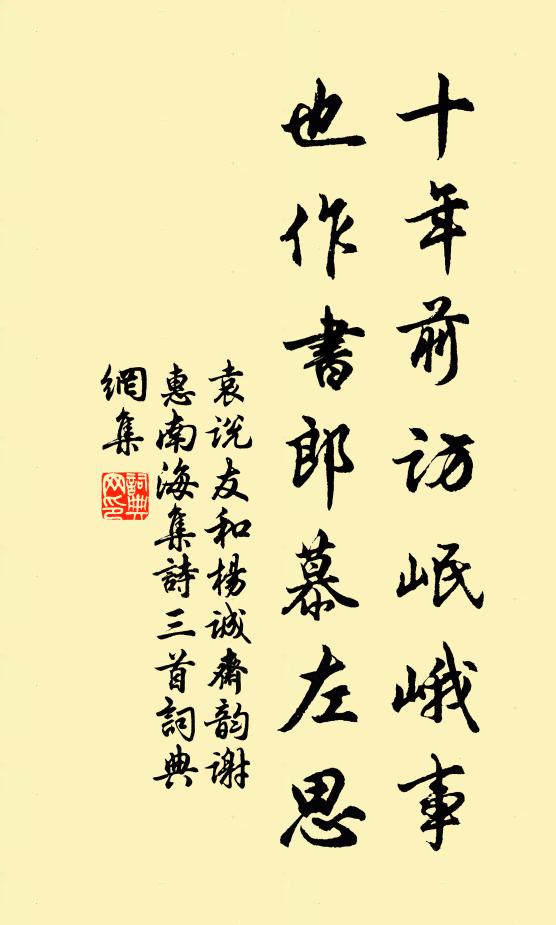 十年前访岷峨事
也作書郎慕左思
袁说友和楊诚齋韵谢
惠南海集詩三首詞典
網集
詞典
网印